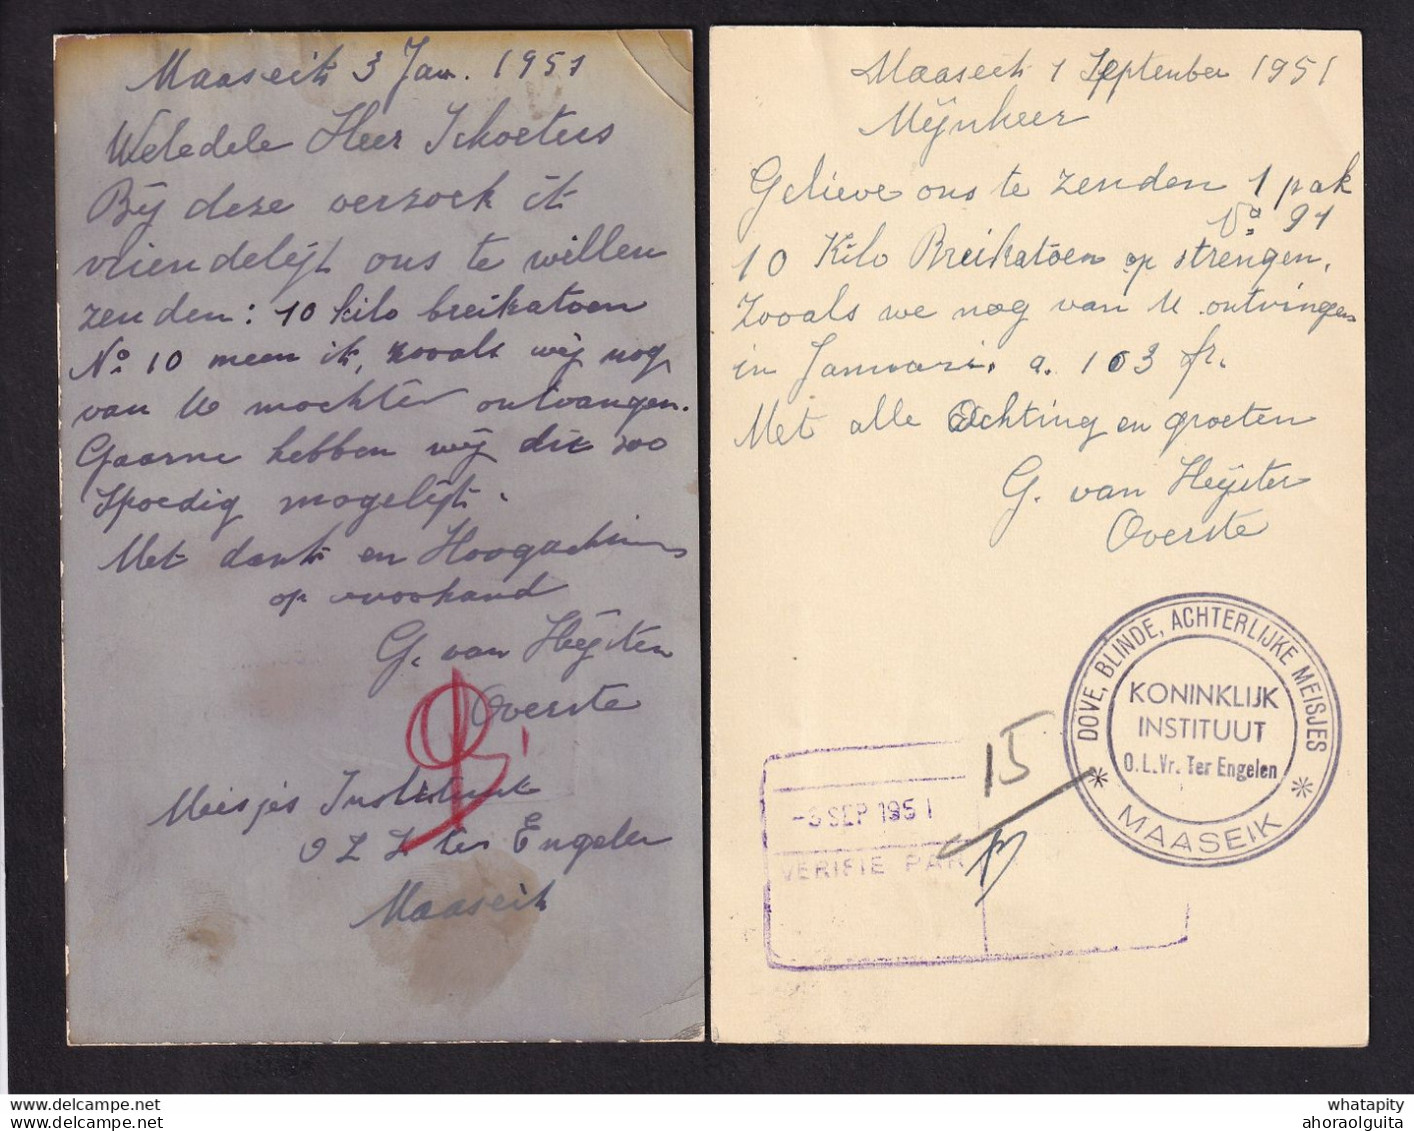 Maaseik 3 Jan. 1951
Weledele Heer Schoeters
Bij deze verzoek ik
vriendelijk ons te willen
zenden: 10 kilo breikatoen
No 10 meen ik, zooals wij nog
van U mochten ontvangen.
Gaarne hebben wij dit zoo
spoedig mogelijk.
Met dank en Hoogachting
op voorhand
G. van Heijster
Overste
Meisjes Instituut
O L V ter Engelen
Maaseik
Maaseik 1 September 1951
Mijnheer
Gelieve ons te zenden 1 pak
No 91
10 Kilo Breikatoen op strengen,
Zooals we nog van U ontvingen
in Januari. a. 103 fr.
Met alle Achting en groeten
G. van Heijster
Overste
DOVE, BLINDE, ACHTERLIJKE MEISJES
KONINKLIJK
INSTITUUT
O.L.Vr. Ter Engelen
* MAASEIK *
15
-3 SEP 1951
VERIFIE PAR
whatapity
ahoraolguita
whatapity
ahoraolguita